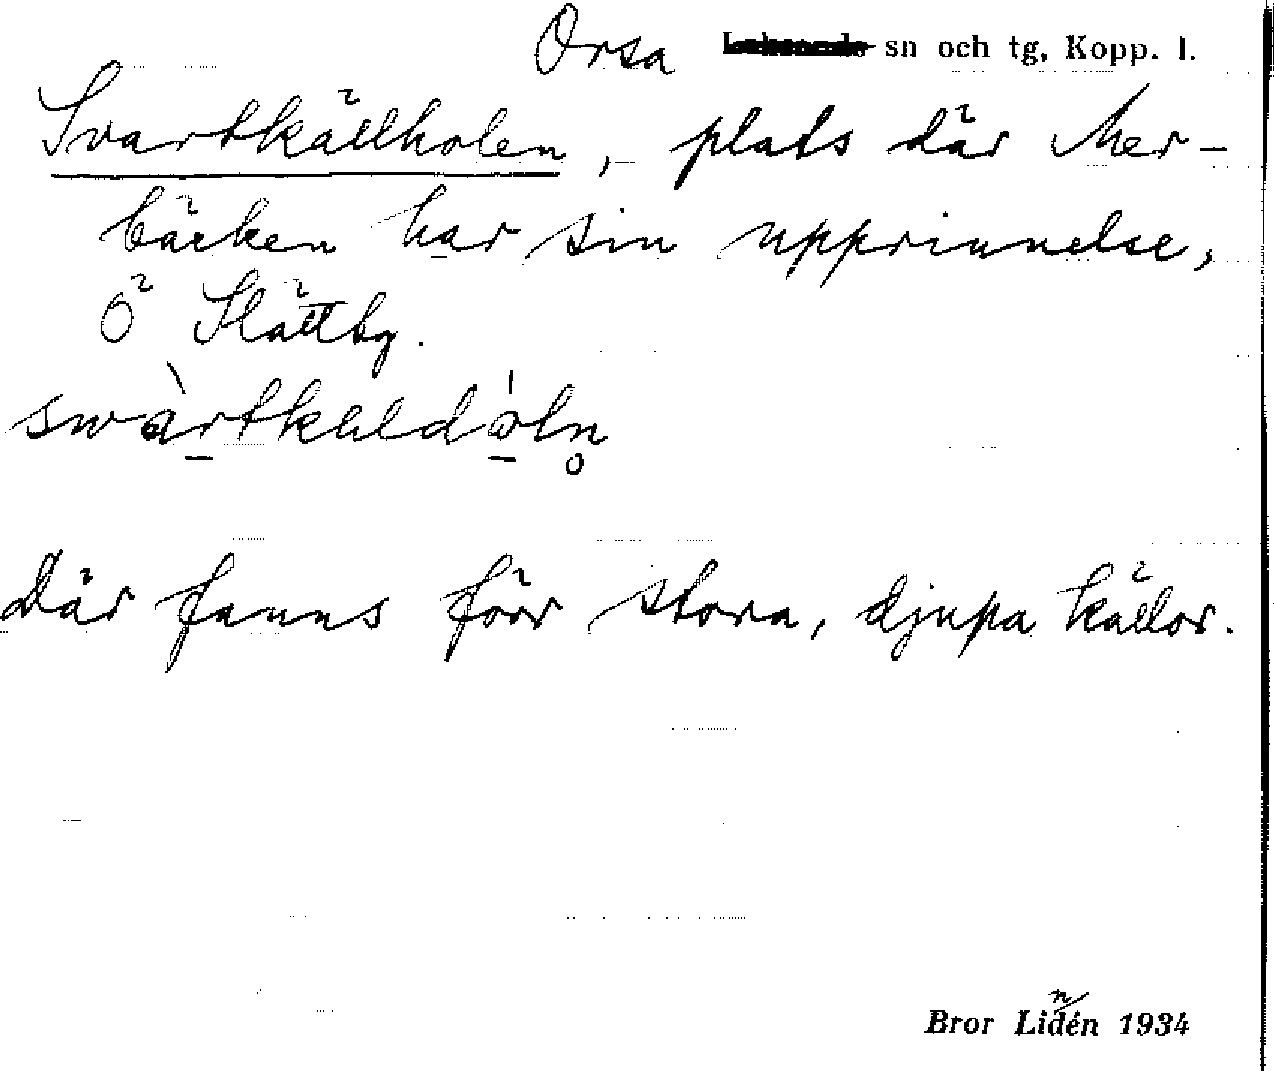 Orsa sn och tg, Kopp. l.
Svartkällholen, plats där Mer-
bäcken har sin upprinnelse,
Ö Slättbg.
Där fanns förr stora, djupa källor.
Bror Lidén 1934